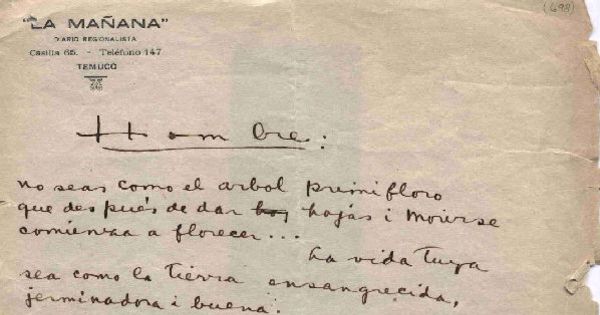 (498)
"LA MAÑANA"
DIARIO REGIONALISTA
Casilla 65. - Teléfono 147
TEMUCO
Hombre:
no seas como el arbol primifloro
que después de dar hoj hojás i morirse
comienza a florecer...
La vida tuya
sea como la tierra ensangrecida,
jerminadora i buena.